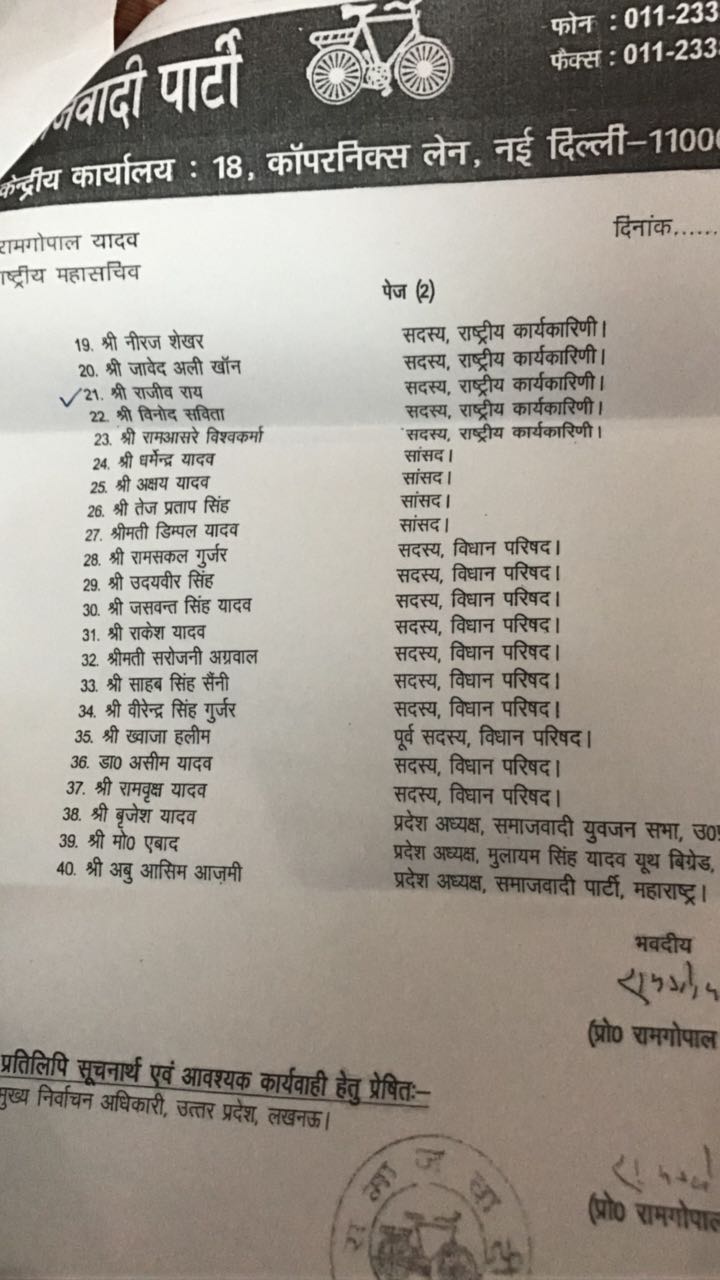 जवादी पार्टी
फोन : 011-233
फैक्स : 011-233
केन्द्रीय कार्यालय : 18, कॉपरनिक्स लेन, नई दिल्ली-11000
रामगोपाल यादव
दिनांक......
ाष्ट्रीय महासचिव
पेज (2)
19. श्री नीरज शेखर सदस्य, राष्ट्रीय कार्यकारिणी।
20. श्री जावेद अली खॉन सदस्य, राष्ट्रीय कार्यकारिणी।
21. श्री राजीव राय सदस्य, राष्ट्रीय कार्यकारिणी।
22. श्री विनोद सविता सदस्य, राष्ट्रीय कार्यकारिणी।
23. श्री रामआसरे विश्वकर्मा सदस्य, राष्ट्रीय कार्यकारिणी।
24. श्री धर्मेन्द्र यादव सांसद।
25. श्री अक्षय यादव सांसद।
26. श्री तेज प्रताप सिंह सांसद।
27. श्रीमती डिम्पल यादव सांसद।
28. श्री रामसकल गुर्जर सदस्य, विधान परिषद।
29. श्री उदयवीर सिंह सदस्य, विधान परिषद।
30. श्री जसवन्त सिंह यादव सदस्य, विधान परिषद।
31. श्री राकेश यादव सदस्य, विधान परिषद।
32. श्रीमती सरोजनी अग्रवाल सदस्य, विधान परिषद।
33. श्री साहब सिंह सैंनी सदस्य, विधान परिषद।
34. श्री वीरेन्द्र सिंह गुर्जर सदस्य, विधान परिषद।
35. श्री ख्वाजा हलीम पूर्व सदस्य, विधान परिषद।
36. डा0 असीम यादव सदस्य, विधान परिषद।
37. श्री रामवृक्ष यादव सदस्य, विधान परिषद।
38. श्री बृजेश यादव प्रदेश अध्यक्ष, समाजवादी युवजन सभा, उ0प्र
39. श्री मो0 एबाद प्रदेश अध्यक्ष, मुलायम सिंह यादव यूथ बिग्रेड,
40. श्री अबु आसिम आज़मी प्रदेश अध्यक्ष, समाजवादी पार्टी, महाराष्ट्र।
भवदीय
(प्रो0 रामगोपाल
प्रतिलिपि सूचनार्थ एवं आवश्यक कार्यवाही हेतु प्रेषितः-
मुख्य निर्वाचन अधिकारी, उत्तर प्रदेश, लखनऊ।
(प्रो0 रामगोपाल